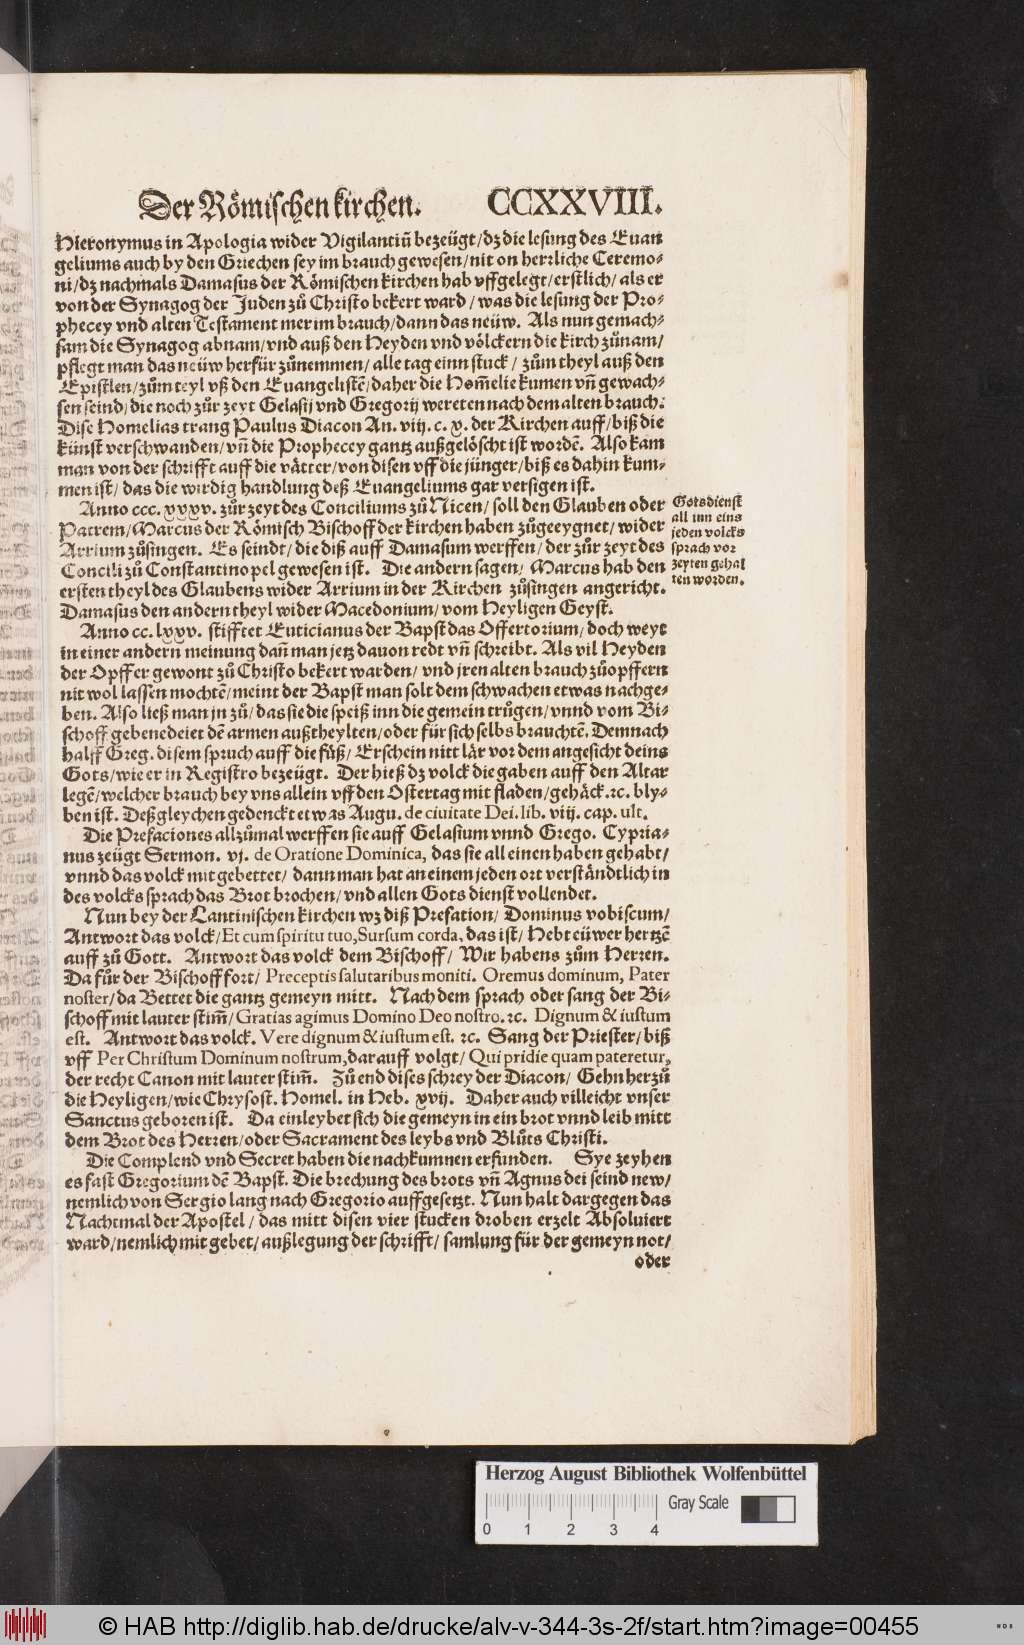 Der Römischen kirchen. CCXXVIII.
Hieronymus in Apologia wider Vigilantiū bezeügt/dz die lesung des Euan
geliums auch by den Griechen sey im brauch gewesen/nit on herrliche Ceremo-
ni/dz nachmals Damasus der Römischen kirchen hab vffgelegt/erstlich/als er
von der Synagog der Juden zů Christo bekert ward/was die lesung der Pro-
phecey vnd alten Testament mer im brauch/dann das neüw. Als nun gemach-
sam die Synagog abnam/vnd auß den Heyden vnd völckern die kirch zůnam/
pflegt man das neüw herfür zůnemmen/alle tag einn stuck/ zům theyl auß den
Epistlen/zům teyl vß den Euangelistē/daher die Hom̄elie kumen vñ gewach-
sen seind/die noch zůr zeyt Gelasij vnd Gregorij wereten nach dem alten brauch.
Dise Homelias trang Paulus Diacon An. viij. c. x. der Kirchen auff/biß die
künst verschwanden/vñ die Prophecey gantz außgelöscht ist wordē. Also kam
man von der schrifft auff die vätter/von disen vff die jünger/biß es dahin kum-
men ist/das die wirdig handlung deß Euangeliums gar versigen ist.
Anno ccc. xxxv. zůr zeyt des Conciliums zů Nicen/soll den Glauben oder
Patrem/Marcus der Römisch Bischoff der kirchen haben zůgeeygnet/wider
Arrium zůsingen. Es seindt/die diß auff Damasum werffen/der zůr zeyt des
Concili zů Constantinopel gewesen ist. Die andern sagen/Marcus hab den
ersten theyl des Glaubens wider Arrium in der Kirchen zůsingen angericht.
Damasus den andern theyl wider Macedonium/vom Heyligen Geyst.
Gotsdienst
all inn eins
jeden volcks
sprach vor
zeyten gehal
ten worden.
Anno cc. lxxv. stifftet Euticianus der Bapst das Offertorium/doch weyt
in einer andern meinung dañ man jetz dauon redt vñ schreibt. Als vil Heyden
der Opffer gewont zů Christo bekert warden/vnd jren alten brauch zůopffern
nit wol lassen mochtē/meint der Bapst man solt dem schwachen etwas nachge-
ben. Also ließ man jn zů/das sie die speiß inn die gemein trůgen/vnnd vom Bi-
schoff gebenedeiet dē armen außtheylten/oder für sich selbs brauchtē. Demnach
halff Greg. disem spruch auff die füß/Erschein nitt lär vor dem angesicht deins
Gots/wie er in Registro bezeügt. Der hieß dz volck die gaben auff den Altar
legē/welcher brauch bey vns allein vff den Ostertag mit fladen/gehäck.ꝛc. bly-
ben ist. Deßgleychen gedenckt etwas Augu. de ciuitate Dei. lib. viij. cap. ult.
Die Prefaciones allzůmal werffen sie auff Gelasium vnnd Grego. Cypria-
nus zeügt Sermon. vj. de Oratione Dominica, das sie all einen haben gehabt/
vnnd das volck mit gebettet/ dann man hat an einem jeden ort verständtlich in
des volcks sprach das Brot brochen/vnd allen Gots dienst vollendet.
Nun bey der Lantinischen kirchen wz diß Prefation/Dominus vobiscum/
Antwort das volck/Et cum spiritu tuo, Sursum corda, das ist/Hebt eüwer hertzē
auff zů Gott. Antwort das volck dem Bischoff/ Wir habens zům Herren.
Da für der Bischoff fort/ Preceptis salutaribus moniti. Oremus dominum, Pater
noster/da Bettet die gantz gemeyn mitt. Nach dem sprach oder sang der Bi-
schoff mit lauter stim̄/Gratias agimus Domino Deo nostro.ꝛc. Dignum & iustum
est. Antwort das volck. Vere dignum & iustum est. ꝛc. Sang der Priester/biß
vff Per Christum Dominum nostrum, darauff volgt/ Qui pridie quam pateretur,
der recht Canon mit lauter stim̄. Zů end dises schrey der Diacon/ Gehn herzů
die Heyligen/wie Chrysost. Homel. in Heb. xvij. Daher auch villeicht vnser
Sanctus geboren ist. Da einleybet sich die gemeyn in ein brot vnnd leib mitt
dem Brot des Herren/oder Sacrament des leybs vnd Blůts Christi.
Die Complend vnd Secret haben die nachkumnen erfunden. Sye zeyhen
es fast Gregorium dē Bapst. Die brechung des brots vñ Agnus dei seind new/
nemlich von Sergio lang nach Gregorio auffgesetzt. Nun halt dargegen das
Nachtmal der Apostel/das mitt disen vier stucken droben erzelt Absoluiert
ward/nemlich mit gebet/außlegung der schrifft/samlung für der gemeyn not/
oder
Herzog August Bibliothek Wolfenbüttel
Gray Scale
0 1 2 3 4
© HAB http://diglib.hab.de/drucke/alv-v-344-3s-2f/start.htm?image=00455